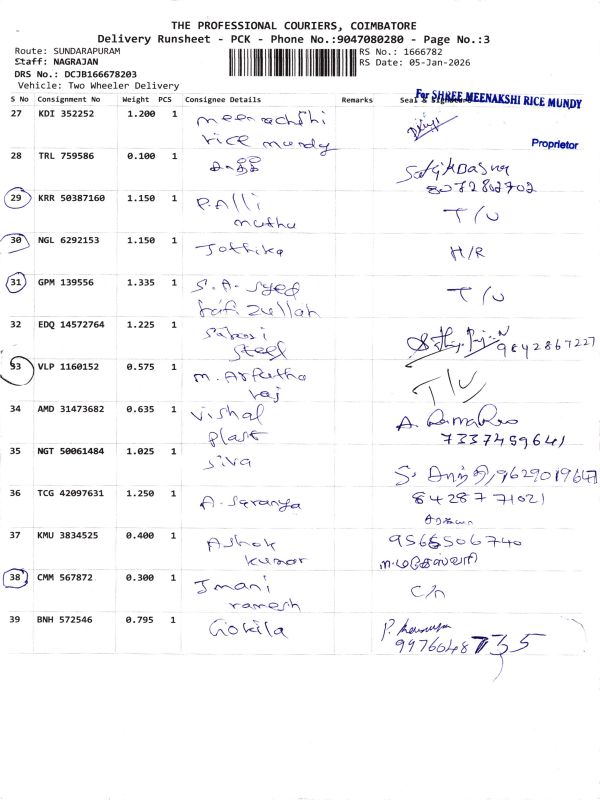 THE PROFESSIONAL COURIERS, COIMBATORE
Delivery Runsheet - PCK - Phone No.:9047080280 - Page No.:3
Route: SUNDARAPURAM
RS No.: 1666782
Staff: NAGRAJAN
RS Date: 05-Jan-2026
DRS No.: DCJB166678203
Vehicle: Two Wheeler Delivery
For SHREE MEENAKSHI RICE MUNDY
S No Consignment No Weight PCS Consignee Details Remarks Seal & Signature
27 KDI 352252 1.200 1 meenachihi
rice mundy
Proprietor
28 TRL 759586 0.100 1
8072802702
29 KRR 50387160 1.150 1 Palli
muthu
T/U
30 NGL 6292153 1.150 1 Jothika H/R
31 GPM 139556 1.335 1 S.A. Syed
T/U
32 EDQ 14572764 1.225 1
steel
9842867227
33 VLP 1160152 0.575 1 M.
raj
T/U
34 AMD 31473682 0.635 1 Vishal
plast
A.
7337459641
35 NGT 50061484 1.025 1 Siva
9629019647
36 TCG 42097631 1.250 1 A. Saranya
8428771021
37 KMU 3834525 0.400 1 Ashok
kumar
9566506740
38 CMM 567872 0.300 1 Jmani
ramesh
C/n
39 BNH 572546 0.795 1 Gokila
9976648735